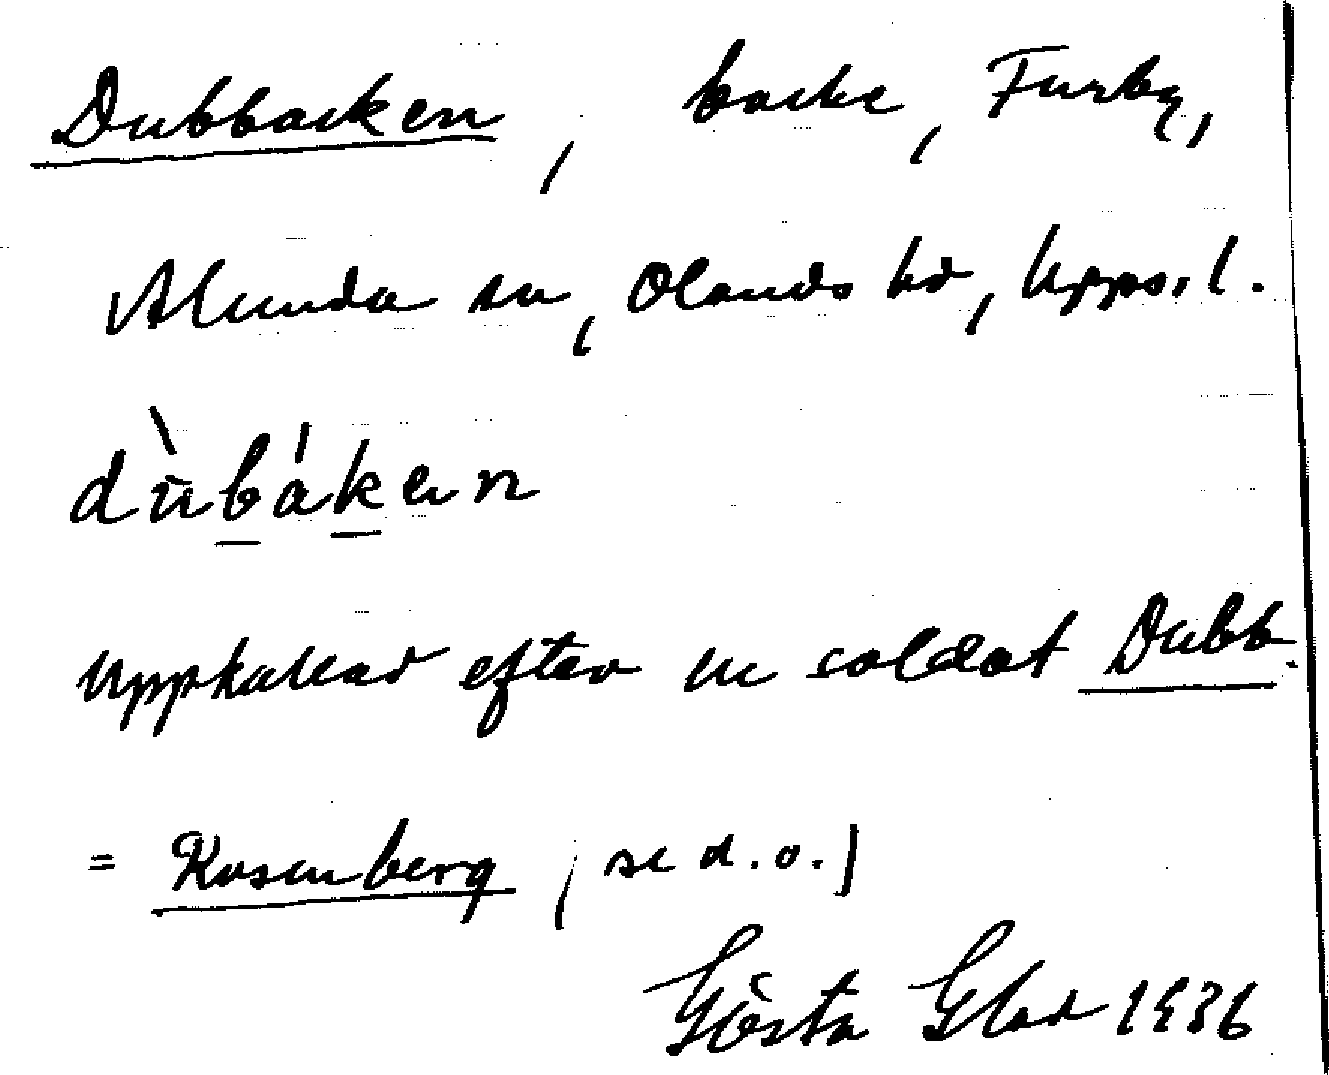 Dubbacken, backe, Furby,
Alunda sn, Olands hd, Upps. l.
dùbákен
Uppkallad efter en soldat Dubb.
= Rosenberg, se d.o.)
Gösta Glad 1936